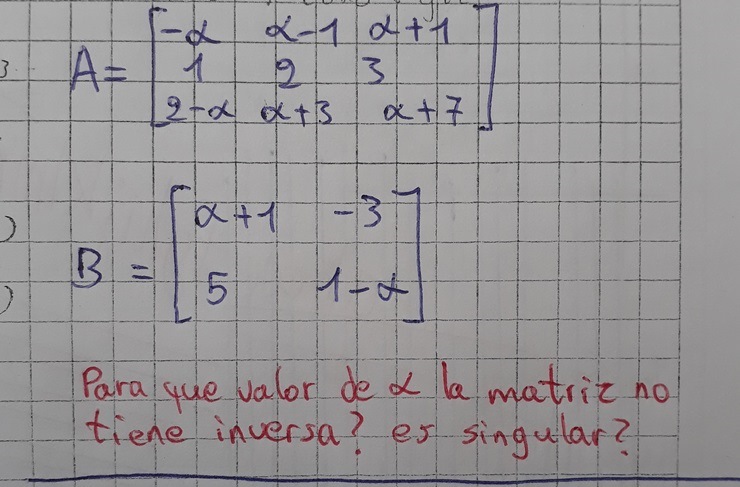 A = [ -α α-1 α+1
1 2 3
2-α α+3 α+7 ]
B = [ α+1 -3
5 1-α ]
Para que valor de α la matriz no
tiene inversa? es singular?